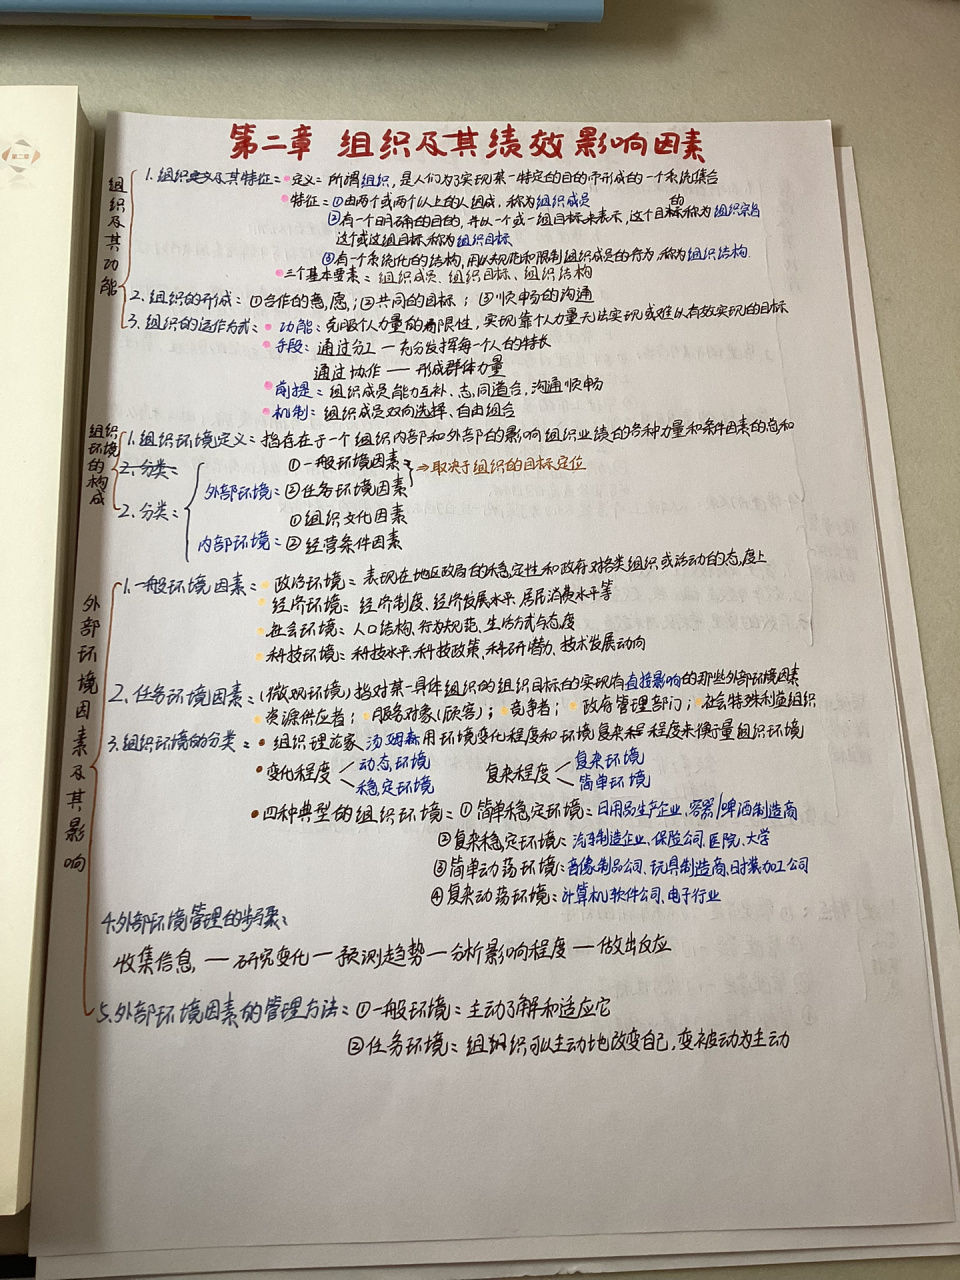 第二章
第二章 组织及其绩效影响因素
组织及其功能
1.组织定义及其特征：定义：所谓组织，是人们为了实现某一特定的目的而形成的一个系统集合
特征：①由两个或两个以上的人组成，称为组织成员
②有一个明确的目的，并以一个或一组目标来表示，这个目的称为组织宗旨
这个或这组目标称为组织目标
③有一个系统化的结构，用以规范和限制组织成员的行为，称为组织结构.
三个基本要素：组织成员、组织目标、组织结构
2.组织的形成：①合作的意愿；②共同的目标；③顺畅的沟通
3.组织的运作方式：功能：克服个人力量的局限性，实现靠个人力量无法实现或难以有效实现的目标
手段：通过分工—充分发挥每个人的特长
通过协作——形成群体力量
前提：组织成员能力互补、志同道合，沟通顺畅
机制：组织成员双向选择、自由组合
组织环境的构成
1.组织环境定义：指存在于一个组织内部和外部的影响组织业绩的各种力量和条件因素的总和
2.分类：
①一般环境因素
外部环境：②任务环境因素 ⇒取决于组织的目标定位
2.分类：
①组织文化因素
内部环境：②经营条件因素
外部环境因素及其影响
1.一般环境因素：政治环境：表现在地区政局的稳定性和政府对各类组织或活动的态度上
经济环境：经济制度、经济发展水平、居民消费水平等
社会环境：人口结构、行为规范、生活方式与态度
科技环境：科技水平、科技政策、科研潜力、技术发展动向
2.任务环境因素：（微观环境）指对某一具体组织的组织目标的实现有直接影响的那些外部环境因素
资源供应者；服务对象（顾客）；竞争者；政府管理部门；社会特殊利益组织
3.组织环境的分类：组织理论家汤姆森用环境变化程度和环境复杂程度来衡量组织环境
变化程度 动态环境 稳定环境 复杂程度 复杂环境 简单环境
四种典型的组织环境：①简单稳定环境：日用品生产企业、容器/啤酒制造商
②复杂稳定环境：汽车制造企业、保险公司、医院、大学
③简单动荡环境：音像制品公司、玩具制造商、时装加工公司
④复杂动荡环境：计算机软件公司、电子行业
4.外部环境管理的步骤：
收集信息—研究变化—预测趋势—分析影响程度—做出反应
5.外部环境因素的管理方法：①一般环境：主动了解和适应它
②任务环境：组织可以主动地改变自己，变被动为主动